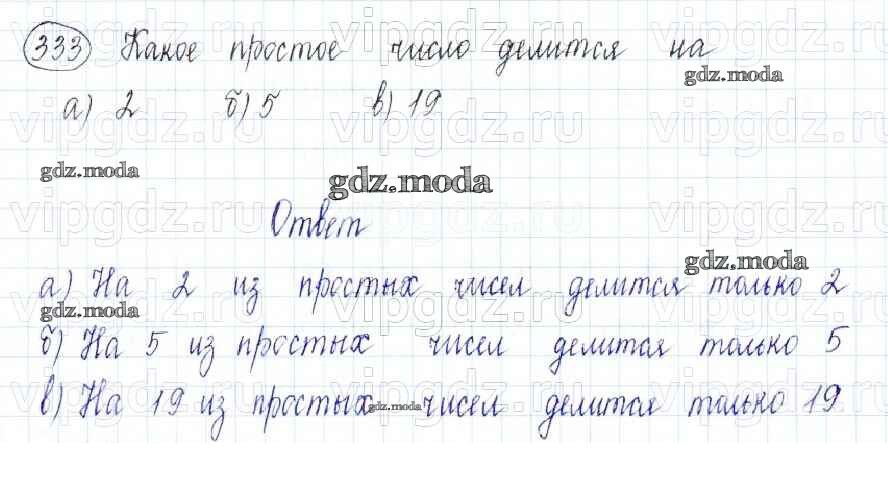 333 Какое простое число делится на
gdz.moda
а) 2 б) 5 в) 19
gdz.moda
gdz.moda
Ответ
gdz.moda
а) На 2 из простых чисел делится только 2
gdz.moda
б) На 5 из простых чисел делится только 5
в) На 19 из простых gdz.moda чисел делится только 19
vipgdz.ru vipgdz.ru vipgdz.ru